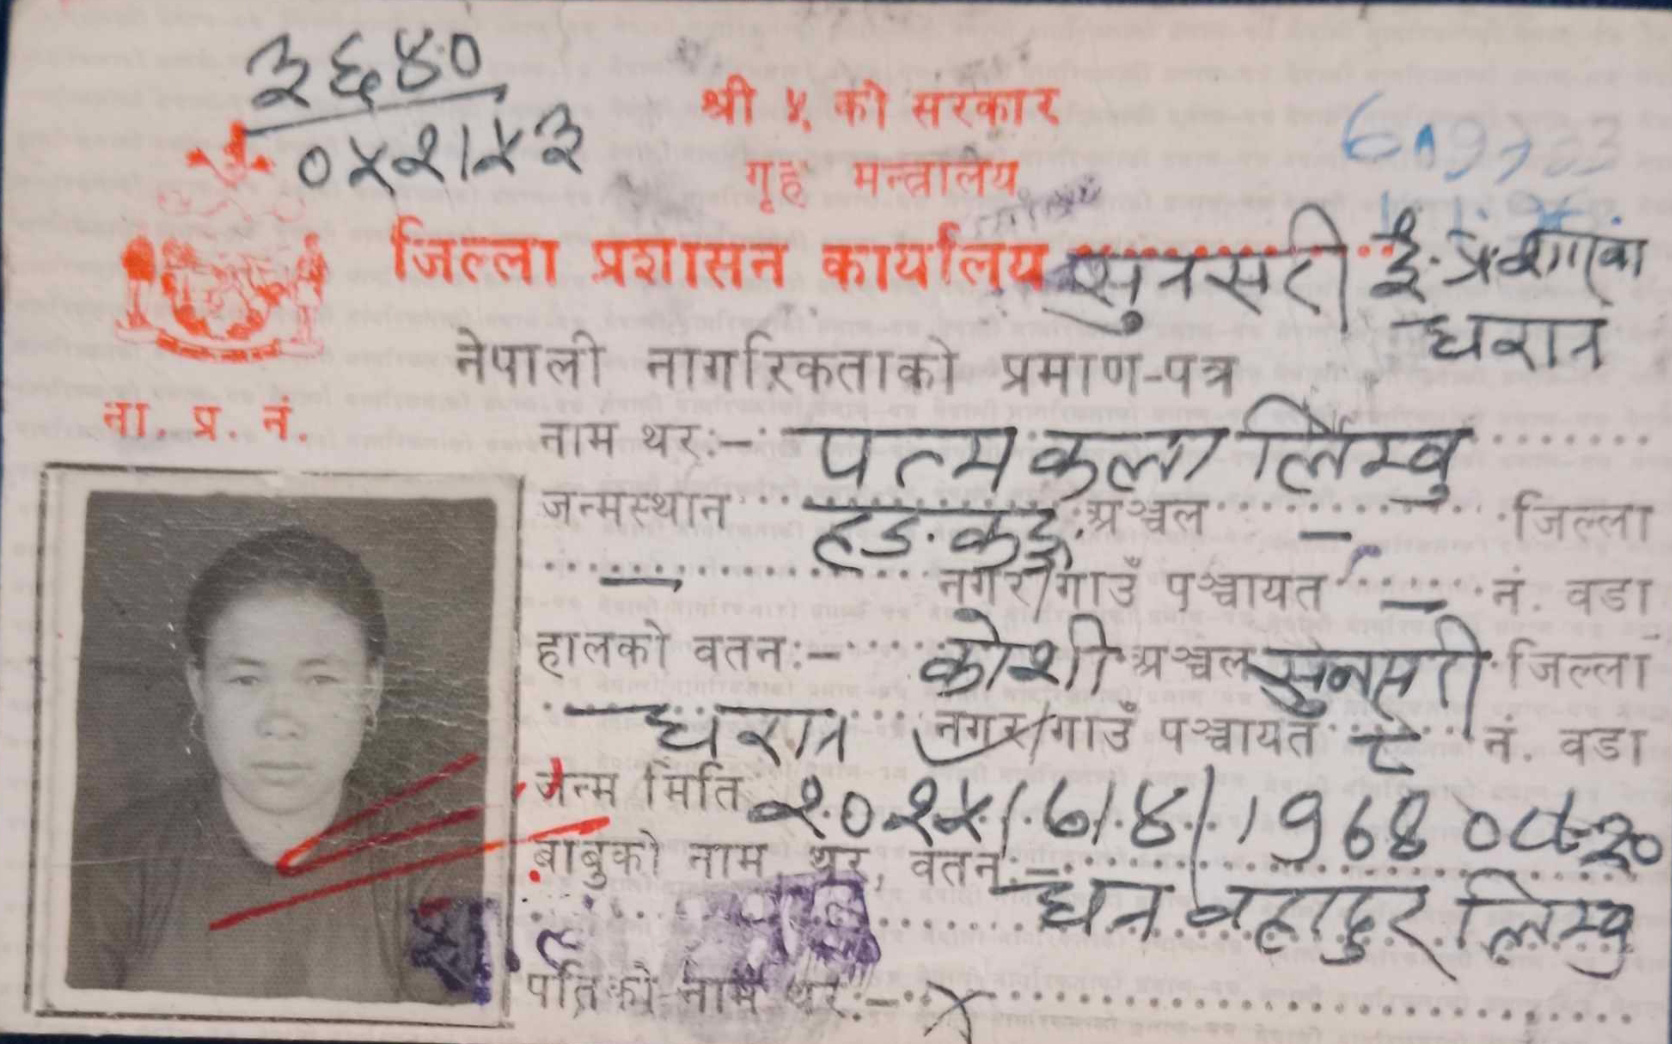 ३६४०
०४२।४३
श्री ५ को सरकार
गृह मन्त्रालय
जिल्ला प्रशासन कार्यालय सुनसरी ई. प्र. का
धरान
नेपाली नागरिकताको प्रमाण-पत्र
ना. प्र. नं.
नाम थर:- पदम कला लिम्बु
जन्मस्थान हङकङ अञ्चल - जिल्ला
- नगर/गाउँ पञ्चायत - नं. वडा
हालको वतन:- कोशी अञ्चल सुनसरी जिल्ला
धरान नगर/गाउँ पञ्चायत ८ नं. वडा
जन्म मिति २०२५।७।४।1968
बाबुको नाम, थर, वतन:-
धन बहादुर लिम्बु
पतिको नाम थर:- x